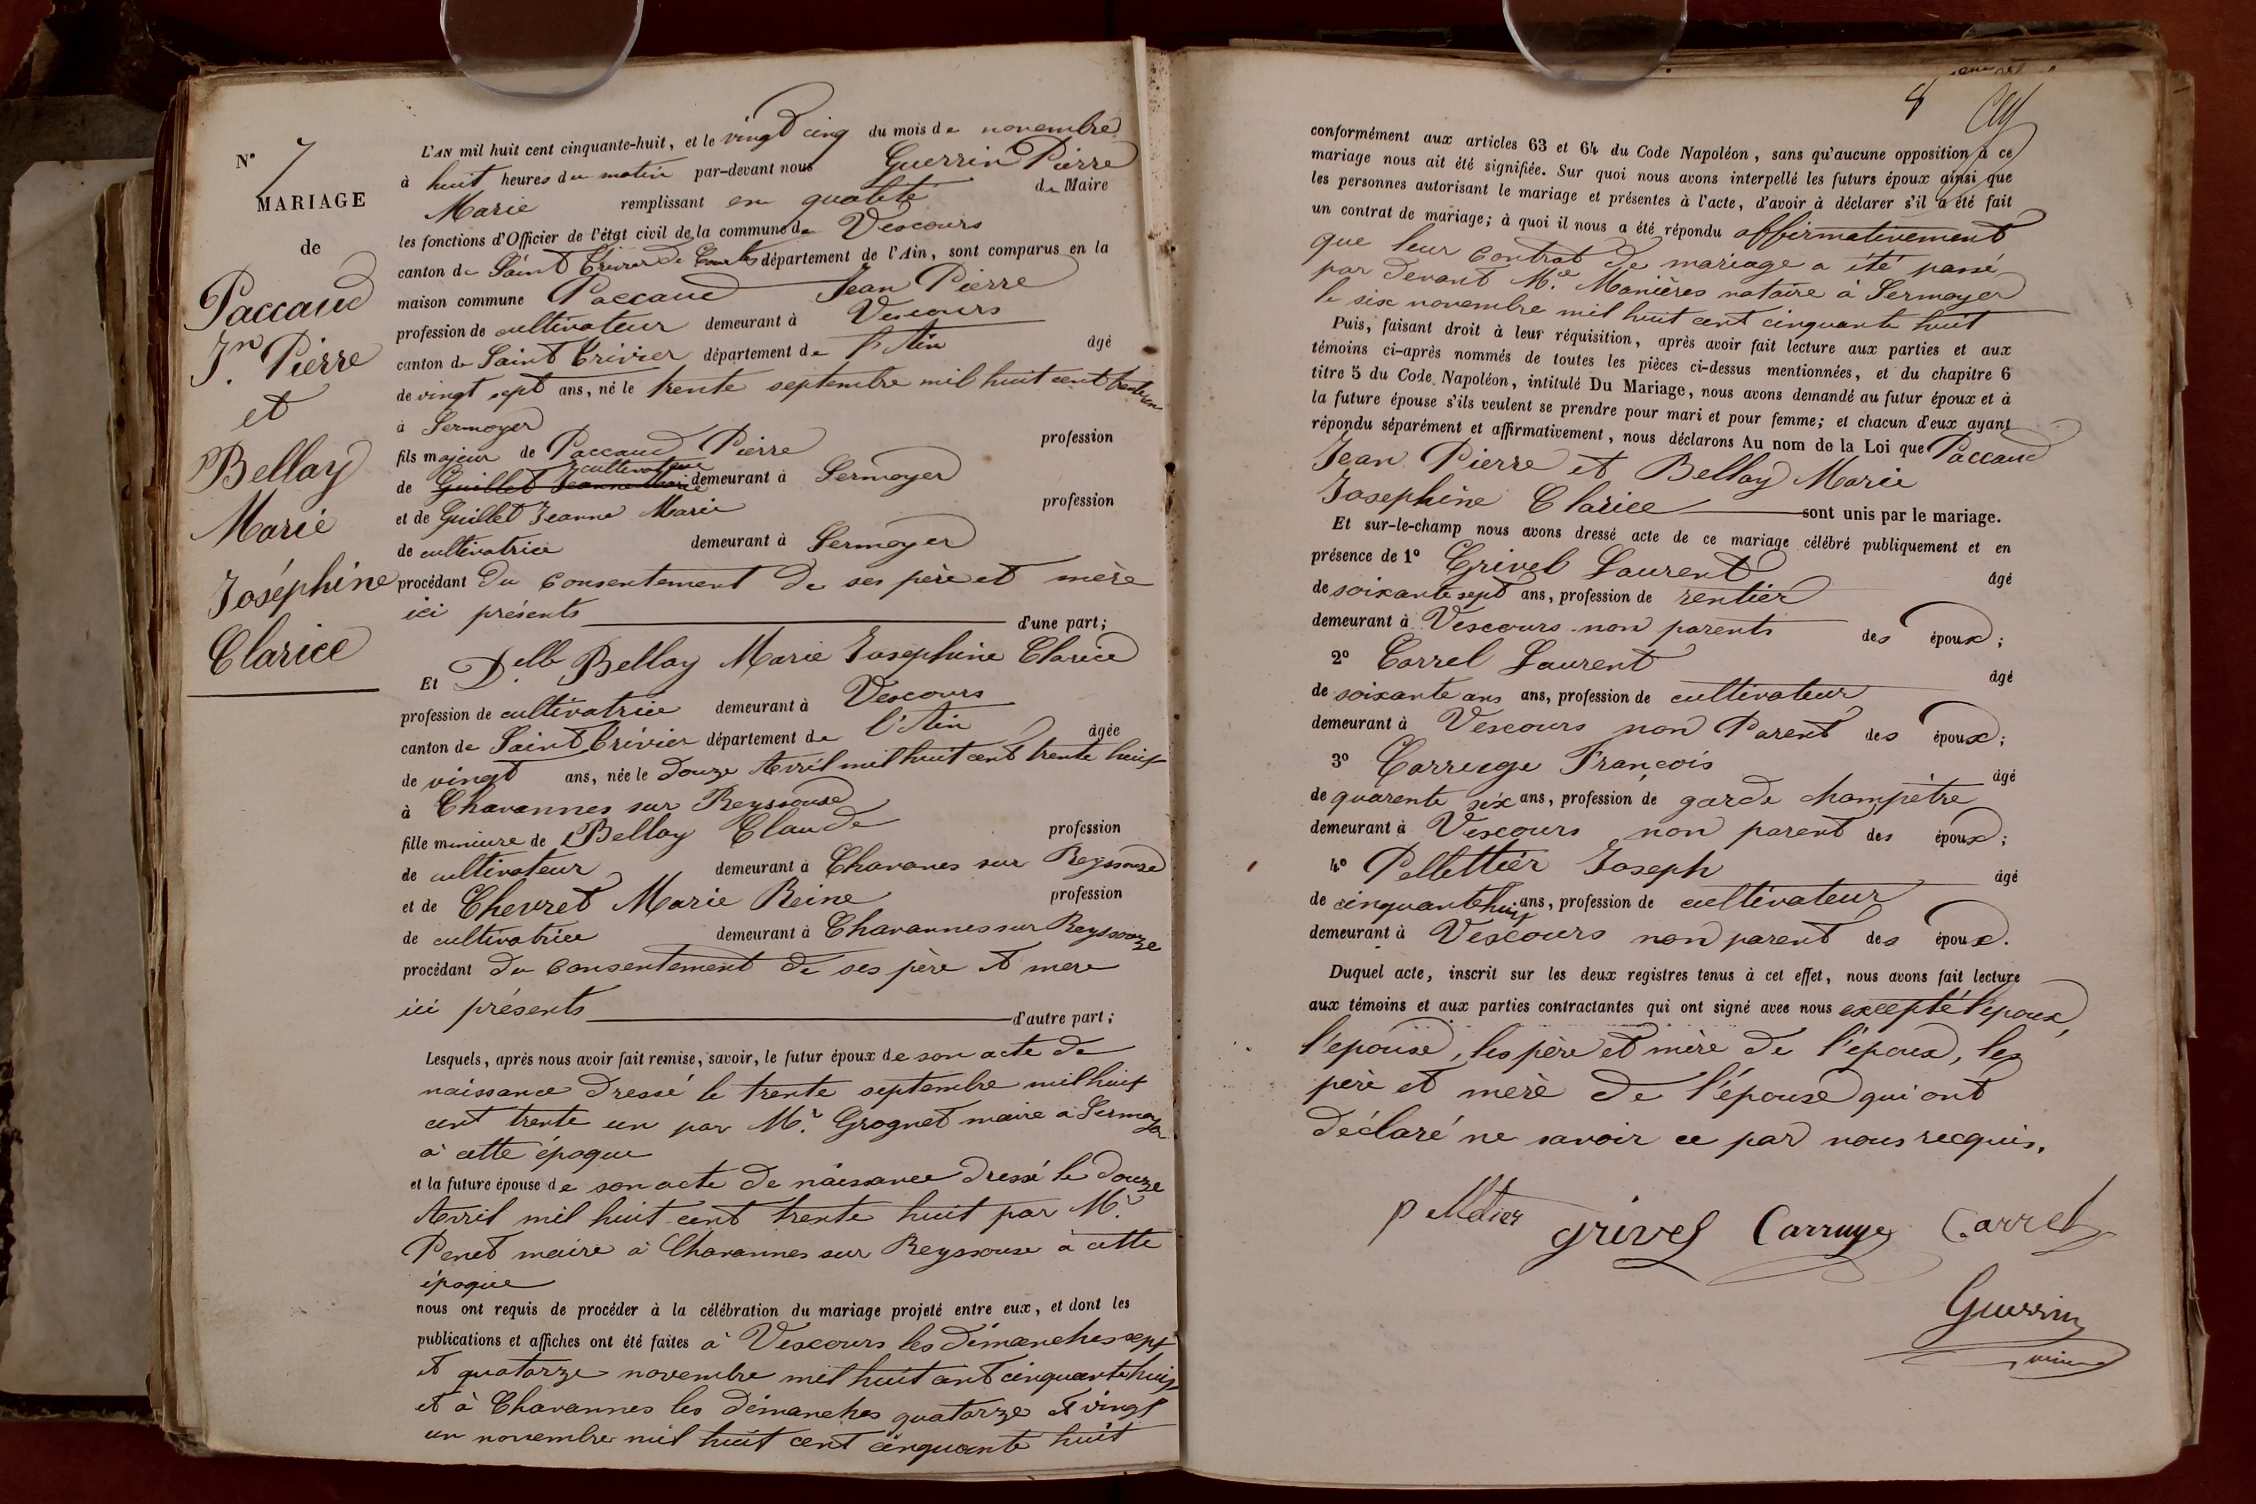 N° 7
MARIAGE
de
Paccaud
Jn. Pierre
et
Bellay
Marie
Joséphine
Clarice
L'AN mil huit cent cinquante-huit, et le vingt cinq du mois de novembre
à huit heures du matin par-devant nous Guerrin Pierre
Marie remplissant en qualité de Maire
les fonctions d'Officier de l'état civil de la commune de Vescours
canton de Saint Trivier de Courtes département de l'Ain, sont comparus en la
maison commune Paccaud Jean Pierre
profession de cultivateur demeurant à Vescours
canton de Saint Trivier département de l'Ain âgé
de vingt sept ans, né le trente septembre mil huit cent trente un
à Sermoyer
fils majeur de Paccaud Pierre profession
de Guillet Jeanne Marie cultivateur demeurant à Sermoyer
et de Guillet Jeanne Marie profession
de cultivatrice demeurant à Sermoyer
procédant du consentement de ses père et mère
ici présents d'une part;
Et Delle Bellay Marie Josephine Clarice
profession de cultivatrice demeurant à Vescours
canton de Saint Trivier département de l'Ain âgée
de vingt ans, née le douze Avril mil huit cent trente huit
à Chavannes sur Reyssouse
fille mineure de Bellay Claude profession
de cultivateur demeurant à Chavanes sur Reyssouze
et de Chevret Marie Reine profession
de cultivatrice demeurant à Chavannes sur Reyssouze
procédant du consentement de ses père et mere
ici présents d'autre part;
Lesquels, après nous avoir fait remise, savoir, le futur époux de son acte de
naissance dressé le trente septembre mil huit
cent trente un par Mr. Grognet maire a Sermoyer
à cette époque
et la future épouse de son acte de naissance dressé le douze
Avril mil huit cent trente huit par Mr.
Penet maire à Chavannes sur Reyssouse à cette
époque
nous ont requis de procéder à la célébration du mariage projeté entre eux, et dont les
publications et affiches ont été faites à Vescours les dimanches sept
et quatorze novembre mil huit cent cinquante huit
et à Chavannes les dimanches quatorze et vingt
un novembre mil huit cent cinquante huit
8
conformément aux articles 63 et 64 du Code Napoléon, sans qu'aucune opposition à ce
mariage nous ait été signifiée. Sur quoi nous avons interpellé les futurs époux ainsi que
les personnes autorisant le mariage et présentes à l'acte, d'avoir à déclarer s'il a été fait
un contrat de mariage; à quoi il nous a été répondu affirmativement
que leur contrat de mariage a été passé
par devant Me. Manières notaire à Sermoyer
le six novembre mil huit cent cinquante huit
Puis, faisant droit à leur réquisition, après avoir fait lecture aux parties et aux
témoins ci-après nommés de toutes les pièces ci-dessus mentionnées, et du chapitre 6
titre 5 du Code Napoléon, intitulé Du Mariage, nous avons demandé au futur époux et à
la future épouse s'ils veulent se prendre pour mari et pour femme; et chacun d'eux ayant
répondu séparément et affirmativement, nous déclarons Au nom de la Loi que Paccaud
Jean Pierre et Bellay Marie
Josephine Clarice sont unis par le mariage.
Et sur-le-champ nous avons dressé acte de ce mariage célébré publiquement et en
présence de 1° Grivel Laurent âgé
de soixante sept ans, profession de rentier
demeurant à Vescours non parents des époux;
2° Carrel Laurent âgé
de soixante ans ans, profession de cultivateur
demeurant à Vescours non Parent des époux;
3° Carruge François âgé
de quarente six ans, profession de garde champêtre
demeurant à Vescours non parent des époux;
4° Pellettier Joseph âgé
de cinquante huit ans, profession de cultivateur
demeurant à Vescours non parent des époux.
Duquel acte, inscrit sur les deux registres tenus à cet effet, nous avons fait lecture
aux témoins et aux parties contractantes qui ont signé avec nous excepté l'époux,
l'epouse, les père et mère de l'époux, les
père et mère de l'épouse qui ont
déclaré ne savoir ce par nous recquis.
pelletier grivel Carruge Carrel
Guerrin